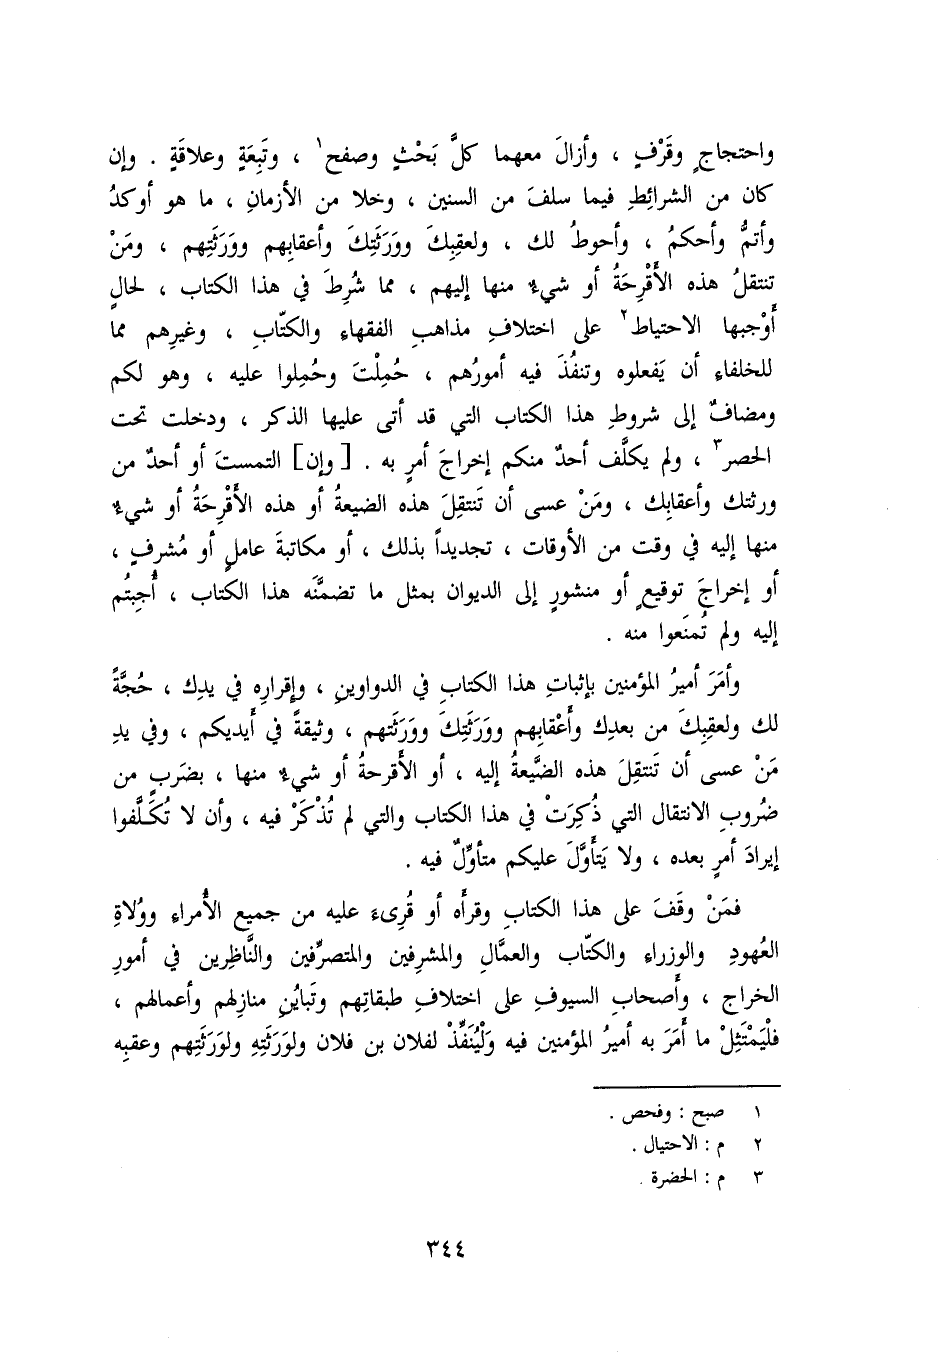 واحتجاجٍ وقَرْفٍ ، وأزالَ معهما كلَّ بَحْثٍ وصفح١ ، وتَبِعَةٍ وعلاقَةٍ . وإن
كان من الشرائِطِ فيما سلفَ من السنين ، وخلا من الأزمانِ ، ما هو أوكدُ
وأتمُّ وأحكمُ ، وأحوطُ لك ، ولعقِبكَ ووَرَثَتِكَ وأعقابِهم ووَرَثَتِهم ، ومَنْ
تنتقلُ هذه الأَقْرِحَةُ أو شيءٌ منها إليهم ، مما شُرِطَ في هذا الكتاب ، لحالٍ
أَوْجبها الاحتياط٢ على اختلافِ مذاهبِ الفقهاءِ والكتّابِ ، وغيرِهم مما
للخلفاءِ أن يَفعلوه وتنفُذَ فيه أمورُهم ، حُمِلْتَ وحُمِلوا عليه ، وهو لكم
ومضافٌ إلى شروطِ هذا الكتاب التي قد أتى عليها الذكر ، ودخلت تحت
الحصر٣ ، ولم يكلَّف أحدٌ منكم إخراجَ أمرٍ به . [ وإن] التمستَ أو أحدٌ من
ورثتك وأعقابِك ، ومَنْ عسى أن تَنتقِلَ هذه الضيعةُ أو هذه الأَقْرِحَةُ أو شيءٌ
منها إليه في وقت من الأوقات ، تجديداً بذلك ، أو مكاتبةَ عاملٍ أو مُشرفٍ ،
أو إخراجَ توقيعٍ أو منشورٍ إلى الديوان بمثل ما تضمَّنَه هذا الكتاب ، أُجِبتُم
إليه ولم تُمنَعوا منه .
وأمَرَ أميرُ المؤمنين بإثباتِ هذا الكتابِ في الدواوينِ ، وإقرارِه في يدِك ، حُجَّةً
لك ولعقِبكَ من بعدِك وأَعْقابِهم ووَرَثَتِكَ ووَرَثَتهم ، وثيقةً في أيديكم ، وفي يدِ
مَنْ عسى أن تَنتقِلَ هذه الضَّيعةُ إليه ، أو الأقرحةُ أو شيءٌ منها ، بضَربٍ من
ضُروبِ الانتقال التي ذُكِرَتْ في هذا الكتاب والتي لم تُذْكَرْ فيه ، وأن لا تُكَلَّفوا
إيرادَ أمرٍ بعده ، ولا يَتأَوَّلَ عليكم متأوِّلٌ فيه .
فمَنْ وقَفَ على هذا الكتابِ وقرأَه أو قُرِىءَ عليه من جميع الأُمراءِ ووُلاةِ
العُهودِ والوزراءِ والكتّاب والعمَّالِ والمشرِفين والمتصرِّفين والنَّاظِرين في أمورِ
الخراج ، وأَصحابِ السيوف على اختلافِ طبقاتِهم وتَبايُنِ منازلِهم وأعمالهم ،
فلْيَمْتَثِلْ ما أَمَرَ به أميرُ المؤمنين فيه وَلْيُنَفِّذْ لفلان بن فلان ولوَرَثَتِهِ ولوَرَثَتِهم وعقبِه
١ صبح : وفحص .
٢ م : الاحتيال .
٣ م : الحضرة .
٣٤٤